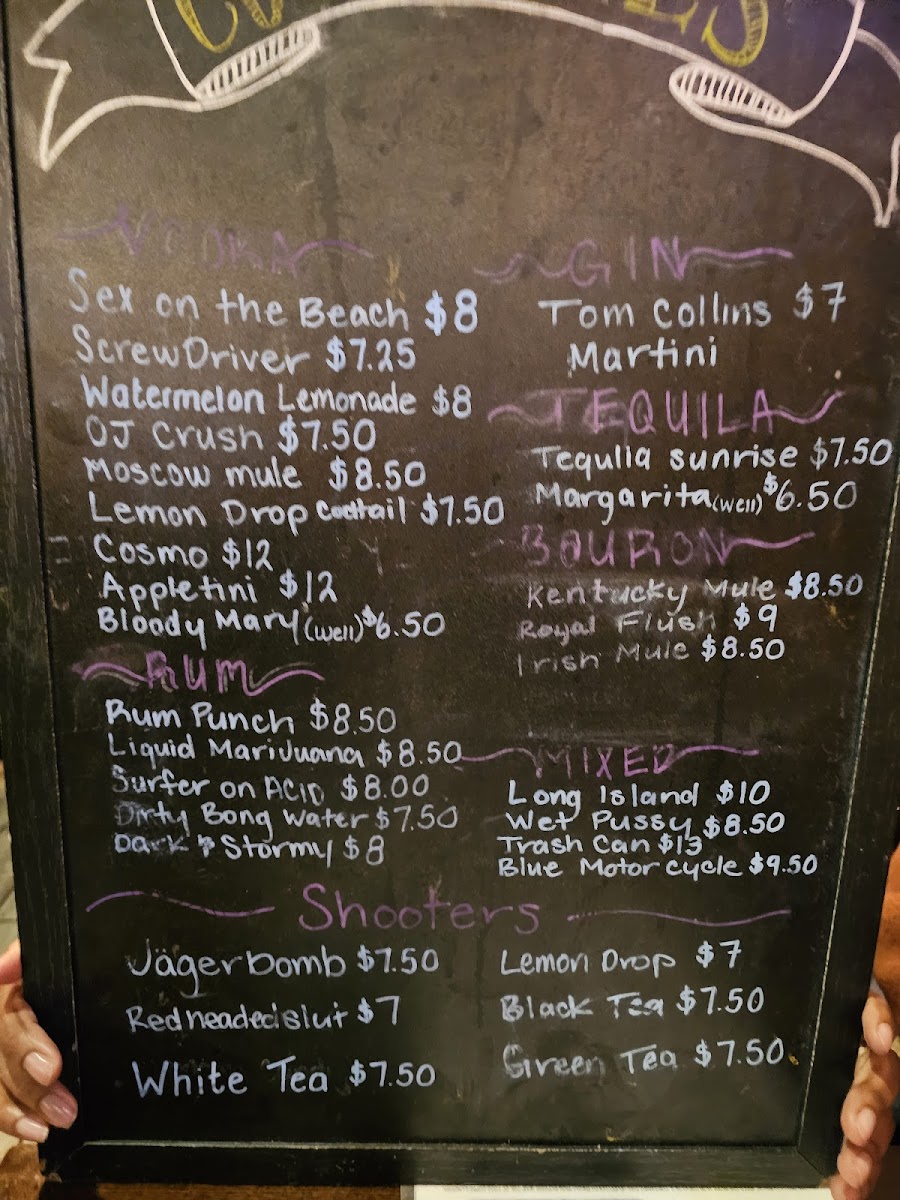 VODKA
Sex on the Beach $8
ScrewDriver $7.25
Watermelon Lemonade $8
OJ Crush $7.50
Moscow mule $8.50
Lemon Drop Cocktail $7.50
Cosmo $12
Appletini $12
Bloody Mary (well) $6.50
RUM
Rum Punch $8.50
Liquid Marijuana $8.50
Surfer on ACID $8.00
Dirty Bong Water $7.50
Dark & Stormy $8
GIN
Tom Collins $7
Martini
TEQUILA
Tequlia sunrise $7.50
Margarita (well) $6.50
BOURON
Kentucky Mule $8.50
Royal Flush $9
Irish Mule $8.50
MIXED
Long Island $10
Wet Pussy $8.50
Trash Can $13
Blue Motor cycle $9.50
Shooters
Jägerbomb $7.50
Redheadedslut $7
White Tea $7.50
Lemon Drop $7
Black Tea $7.50
Green Tea $7.50